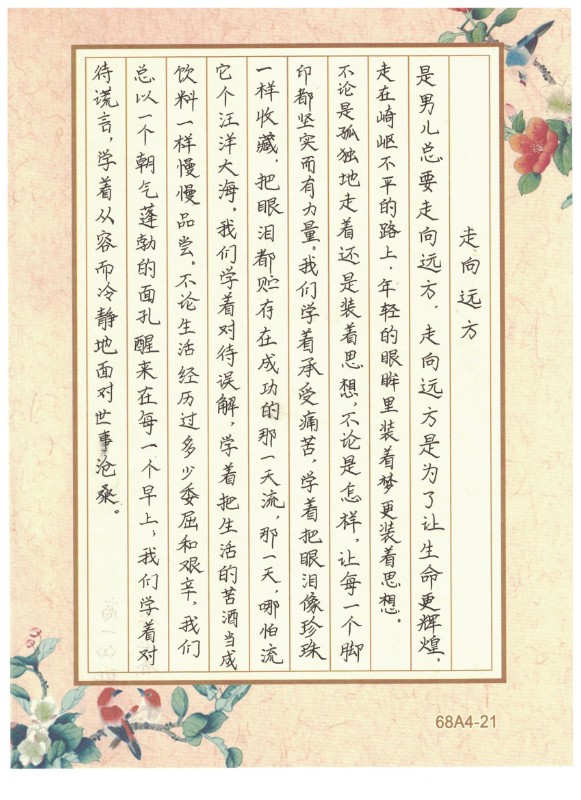 走向远方
是男儿总要走向远方，走向远方是为了让生命更辉煌。
走在崎岖不平的路上，年轻的眼眸里装着梦更装着思想。
不论是孤独地走着还是装着思想，不论是怎样，让每一个脚
印都坚实而有力量。我们学着承受痛苦，学着把眼泪像珍珠
一样收藏，把眼泪都贮存在成功的那一天流，那一天，哪怕流
它个汪洋大海。我们学着对待误解，学着把生活的苦酒当成
饮料一样慢慢品尝。不论生活经历过多少委屈和艰辛，我们
总以一个朝气蓬勃的面孔醒来在每一个早上，我们学着对
待谎言，学着从容而冷静地面对世事沧桑。
68A4-21